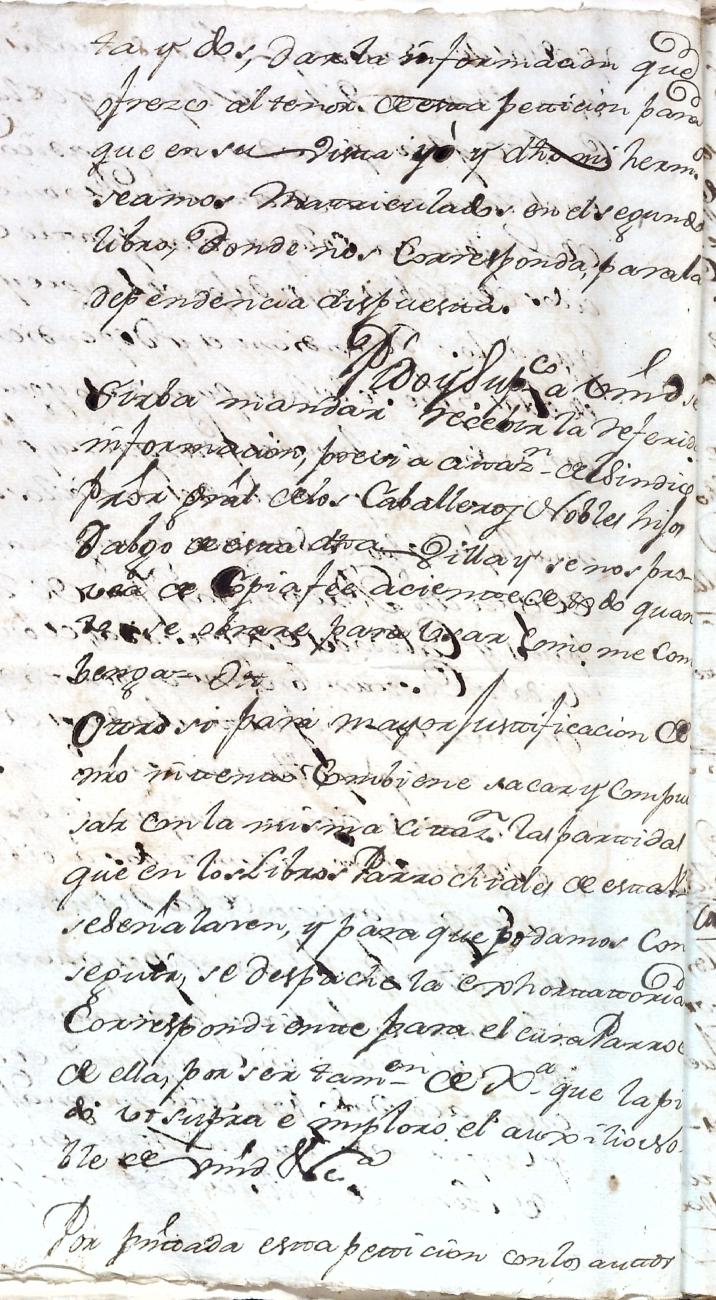 ta y dos, dar la informacion que
ofrezco al tenor de esta peticion para
que en su vista yo y dho mi herm.º
seamos Matriculados en el segundo
libro, donde nos Corresponda, para la
dependencia dispuesta.
Pido y Sup.co a Vmd se
Sirba mandar recebir la referida
informacion, previa citaz.n del Sindico
Prōr Grāl de los Caballeros Nobles hijos
Dalgo de esta dha Villa y se nos pro-
vea de Copia fee aciente de todo quan
to se obrare para Usar como me com
benga=
Otro si para mayor Justificacion de
nrō intento Combiene sacar y Compu
sar con la misma citaz.n las partidas
que en los Libros Parrochiales de esta
se señalaren, y para que podamos Con
seguir, se despache la exhortatoria
Correspondiente para el cura Parroco
de ella, por ser tam.en de X.a que la pi
do ut supra e imploro el auxilio No
ble de Vmd &c.a
Por presentada esta peticion con los autos